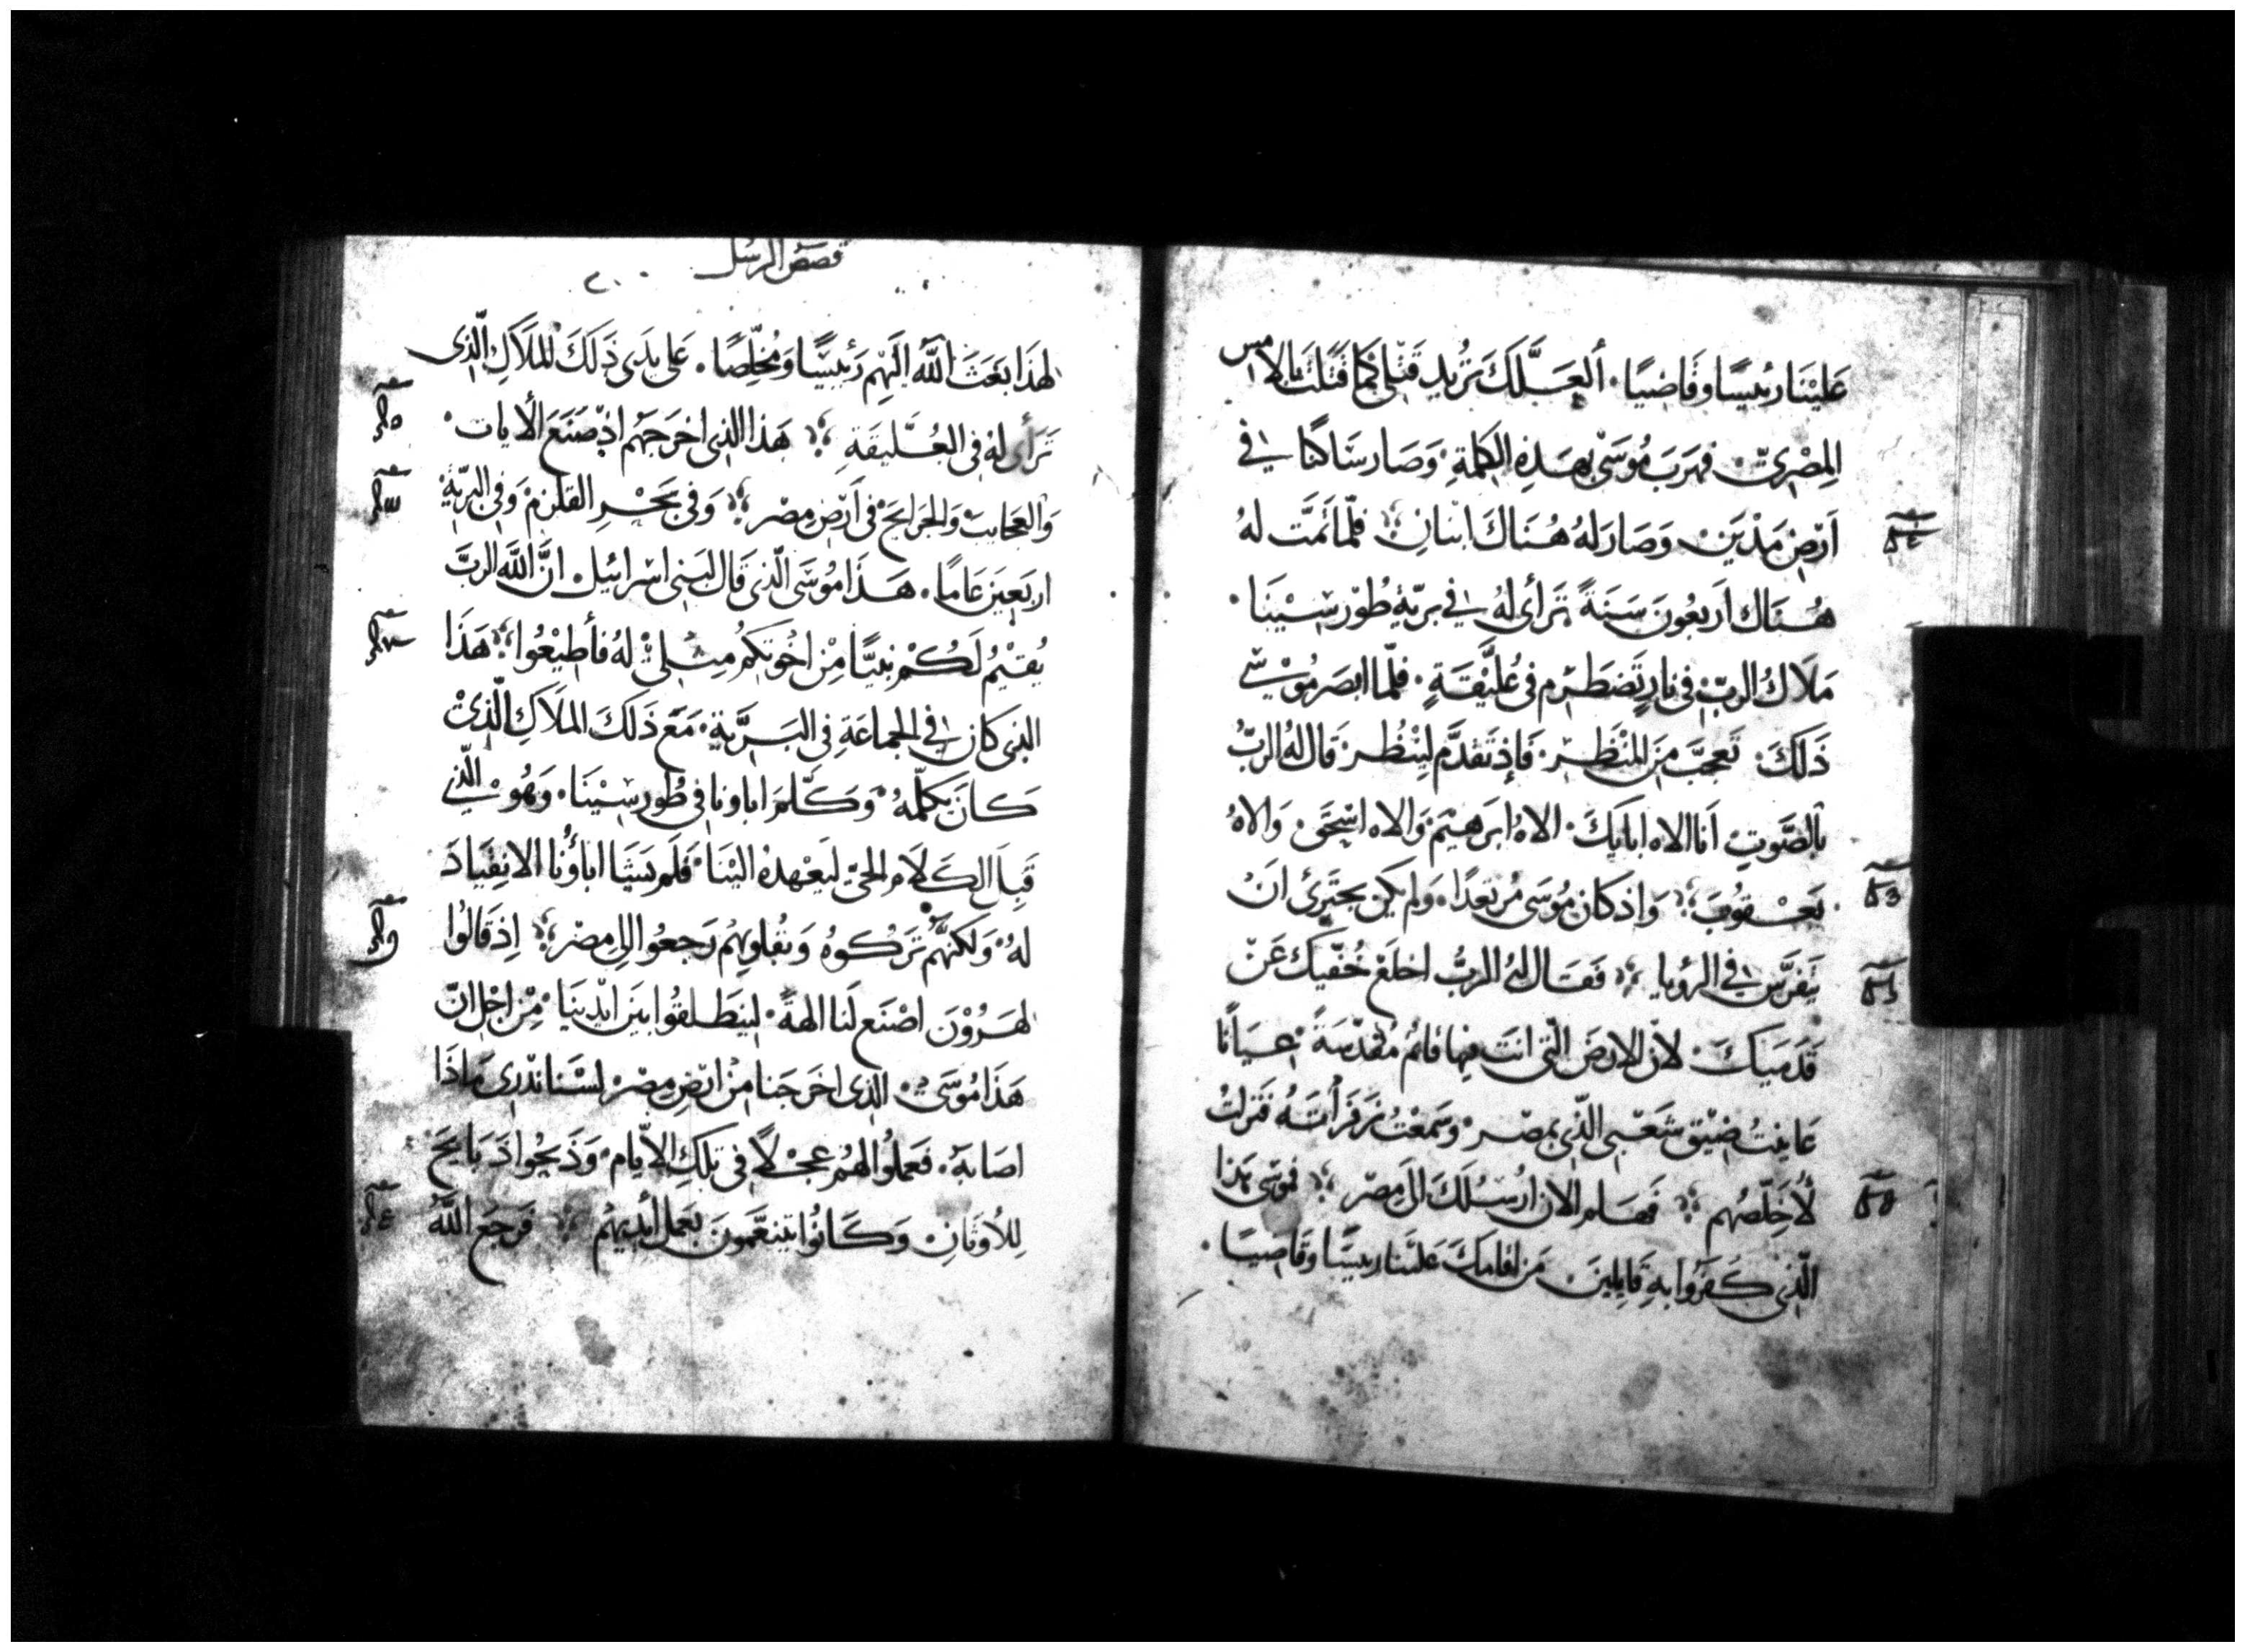 عَلَيْنَا رئيسًا وقَاضيًا. ألعَلَّكَ تَرُيد قَتْلي كَمَا قَتَلتَ بالامس
المِصْريّ. فهَرَبَ مُوسَى بهَذِهِ الكلمةِ. وَصَار سَاكنًا في
اَرْضِ مَدْيَن. وَصَار لهُ هُنَاكَ ابنانِ. فلمّا تَمَّت لهُ
هُنَاك اَربعُونَ سَنَةً تَرأى لهُ في بريّة طُوْر سِيْنَا.
مَلاَك الربّ في نارٍ تَضطَرم في عُلَّيْقَةٍ. فلمّا ابصَر مُوْسَى
ذَلكَ. تَعجبَّ مِنَ المنْظَر. فَاِذ تَقدَّم ليَنْظُر. قَال لهُ الربُّ
بالصَّوتِ اَنا الاه ابايكَ. الاهُ ابرَهيْمَ. وَالاه اسْحَق. وَالاهُ
يَعْقوُبَ. وَاذ كان مُوسَى مُرتعدًا. وَلم يكن يجتَرِئ اَنْ
يَتفَرَّس في الرؤيا. فَقَال لهُ الربُّ اخلَعْ خُفّيك عَنْ
قَدَميَكَ. لانّ الارضَ الّتي انتَ فيها قائمُ مُقدّسَةً. عيَانًا
عَاينتُ ضِيْق شَعْبى الذّى بمصْر. وسَمعْتُ زَفَرأتَهُ فنَزلتُ
لأُخَلِّصُهم. فَهَلم الان ارُسِلَكَ الىَ مصْر. فموُسَى هَذا
الّذي كَفَرُوا بهِ قَايِلينَ. مَن اقامَكَ عَليْنا رييسًا وقَاضيًا.
قصَصُ الرسُل
لهذَا بَعَثَ اللهُ الَيهِم رَئيسًا وَمُخلِّصًا. عَلى يدَى ذَلكَ المَلاَكِ الّذى
تَرأى لهُ في العُلَّيقَةِ. هَذا الذى اخرَجَهُم اذ صَنَعَ الأيات
وَالعَجايبَ وَالجَرَايحَ في اَرْضِ مِصْر. وَفي بَحْرِ القلزمْ وَفي البريّةِ
اربَعينَ عَامًا. هَذَا مُوسَى الّذى قَال لبَنى اسْرائيل. انَّ اللهَ الربَّ
يُقيْمُ لَكُمْ نبيًّا مِنْ اخْوتكمُ مِثلِي لهُ فأطيْعُوا. هَذَا
الذى كان في الجماعَةِ في البَريَّةِ. مَعَ ذَلكَ المَلاَكِ الّذى
كانَ يكلّمهُ. وَكَلّمَ اباونا في طُور سِيْنَا. وَهُو الّذي
قَبِلَ الكَلاَم الحيّ ليَعْهدهُ اليْنَا. فَلَم يَشَا اباؤُنا الانقيَادَ
لهُ. وَلكنهَّمُ تَركُوهُ وَبقُلوُبهُم رَجعُوا الى مصْر. اِذ قَالُوا
لهَرُوْنَ اصْنَع لَنا الهةً. ليَنطَلقُوا بَينَ ايْدينَا. مِنْ اجْل انّ
هَذَا مُوسَى. الذى اخرَجَنا منْ ارْض مصْر. لسْنا نَدْرى مَاذَا
اصَابهُ. فَعَملُوا لهُم عجْلاً في تلكَ الايّام. وَذَبحُوا ذَبَايحَ
لِلأوثَانِ. وَكَانُوا يتنعَّمونَ بعَمل أيْديهُم. فَرجَعَ اللهُ